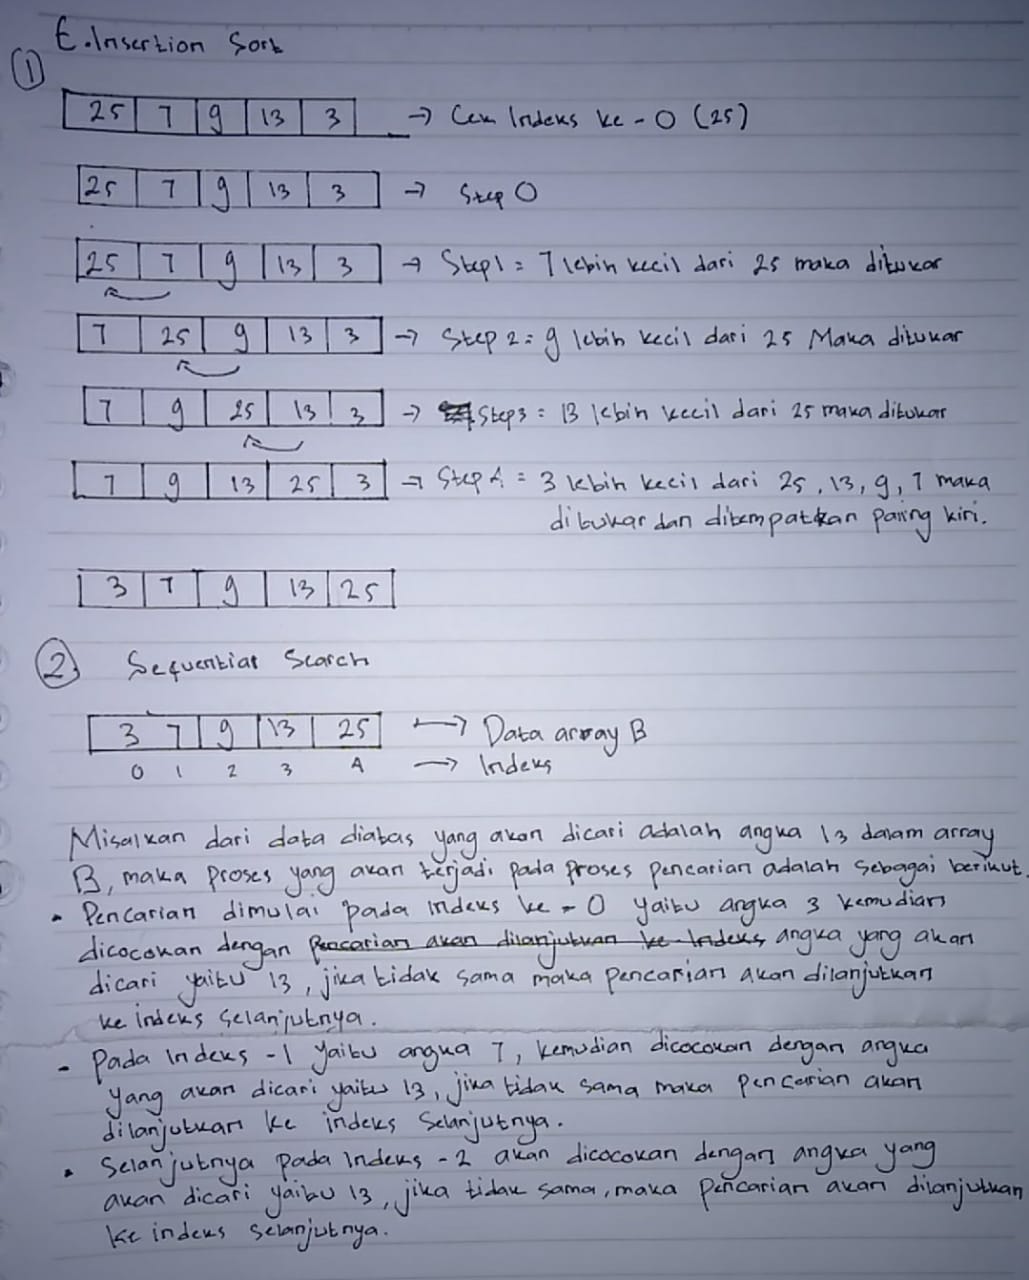 E. Insertion Sort
①
25 7 9 13 3 → Cek Indeks ke - 0 (25)
25 7 9 13 3 → Step 0
25 7 9 13 3 → Step1 = 7 lebih kecil dari 25 maka ditukar
7 25 9 13 3 → Step 2 = 9 lebih kecil dari 25 Maka ditukar
7 9 25 13 3 → Step3 = 13 lebih kecil dari 25 maka ditukar
7 9 13 25 3 → Step 4 = 3 lebih kecil dari 25, 13, 9, 7 maka
ditukar dan ditempatkan paling kiri.
3 7 9 13 25
② Sequential Search
3 7 9 13 25 → Data array B
0 1 2 3 4 → Indeks
Misalkan dari data diatas yang akan dicari adalah angka 13 dalam array
B, maka proses yang akan terjadi pada proses pencarian adalah sebagai berikut.
• Pencarian dimulai pada indeks ke - 0 yaitu angka 3 kemudian
dicocokan dengan pencarian akan dilanjutkan ke indeks angka yang akan
dicari yaitu 13, jika tidak sama maka pencarian akan dilanjutkan
ke indeks selanjutnya.
- Pada Indeks -1 yaitu angka 7, kemudian dicocokan dengan angka
yang akan dicari yaitu 13, jika tidak sama maka pencarian akan
dilanjutkan ke indeks selanjutnya.
• Selanjutnya pada Indeks - 2 akan dicocokan dengan angka yang
akan dicari yaitu 13, jika tidak sama, maka pencarian akan dilanjutkan
ke indeks selanjutnya.